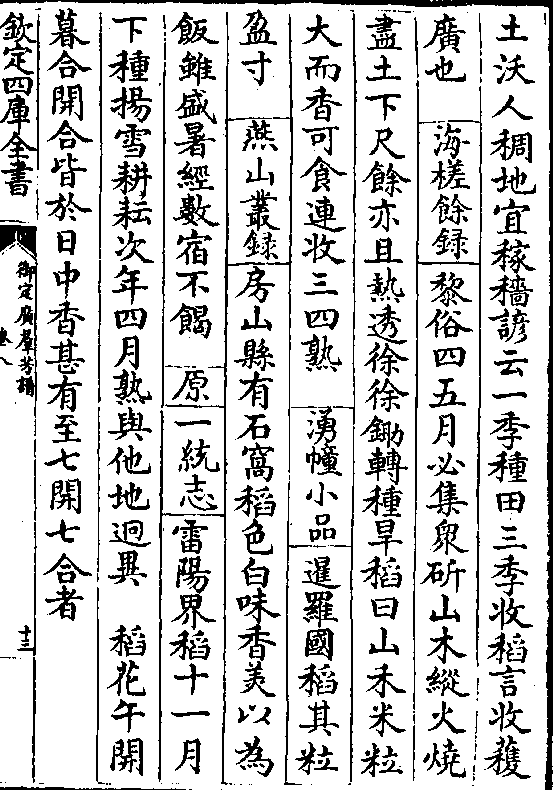 土沃人稠地宜稼穡諺云一季種田三季收稻言收穫
廣也　海槎餘録　黎俗四五月必集衆斫山木縱火燒
盡土下尺餘亦且熱透徐徐鋤轉種旱稻曰山禾米粒
大而香可食連收三四熟　湧幢小品　暹羅國稻其粒
盈寸　燕山叢録　房山縣有石窩稻色白味香美以為
飯雖盛暑經數宿不餲　原　一統志　雷陽界稻十一月
下種揚雪耕耘次年四月熟與他地迥異　稻花午開
暮合開合皆於日中香甚有至七開七合者
欽定四庫全書
御定廣羣芳譜
卷八
十三